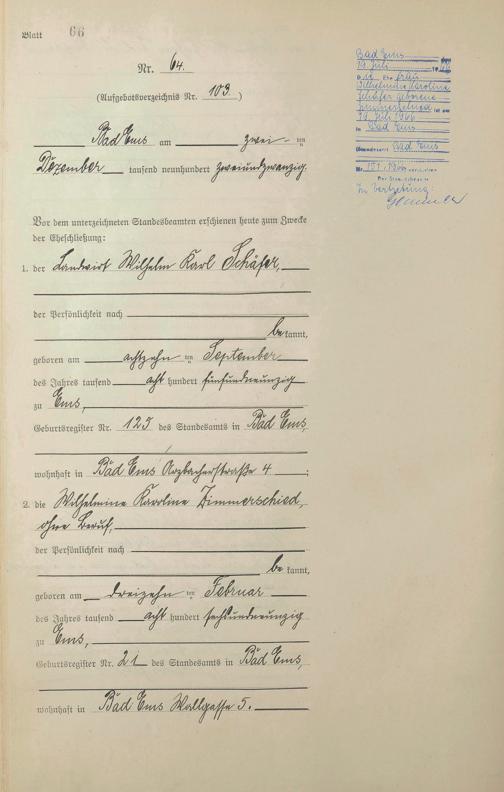 Blatt 66
Nr. 64.
(Aufgebotsverzeichnis Nr. 103)
Bad Ems am zwei ten
Dezember tausend neunhundert zweiundzwanzig.
Vor dem unterzeichneten Standesbeamten erschienen heute zum Zwecke
der Eheschließung:
1. der Landwirt Wilhelm Karl Schäfer,
der Persönlichkeit nach
be kannt,
geboren am achtzehn ten September
des Jahres tausend acht hundert fünfundneunzig
zu Ems,
Geburtsregister Nr. 125 des Standesamts in Bad Ems,
wohnhaft in Bad Ems Arzbacherstraße 4 ;
2. die Wilhelmine Karoline Zimmerschied,
ohne Beruf,
der Persönlichkeit nach
be kannt,
geboren am dreizehn ten Februar
des Jahres tausend acht hundert sechsundneunzig
zu Ems,
Geburtsregister Nr. 21 des Standesamts in Bad Ems,
wohnhaft in Bad Ems Wallgasse 5.
Bad Ems
19. Juli
Frau
Wilhelmine Karoline
Schäfer geborene
Zimmerschied ist am
19. Juli 1966
in Bad Ems
Bad Ems
Nr. 1966
Der Standesbeamte
In Vertretung: